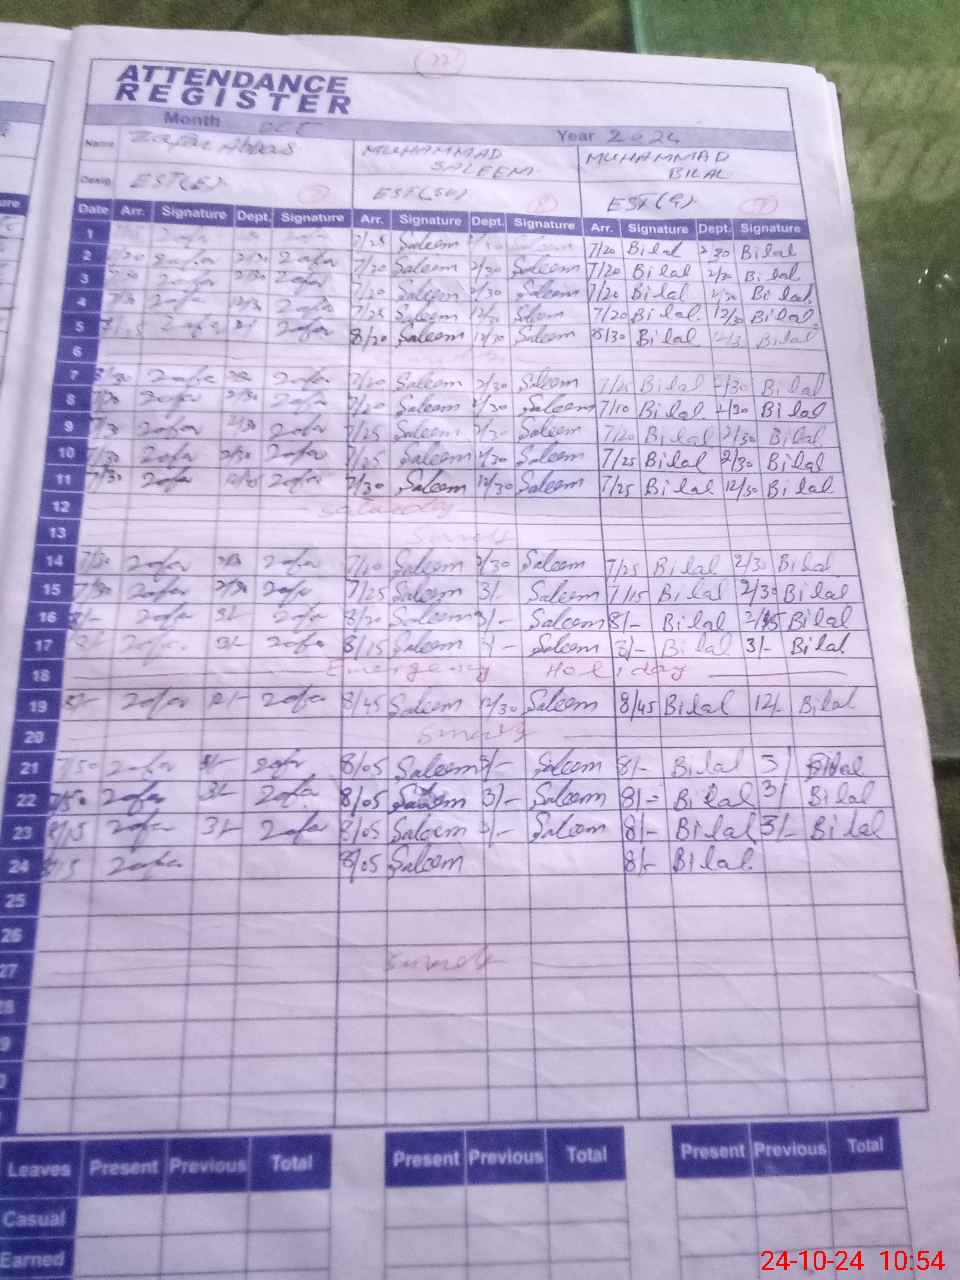 22
ATTENDANCE
REGISTER
Month OCT Year 2024
Name Zafar Abbas MUHAMMAD SALEEM MUHAMMAD BILAL
Desig EST(E) EST(SG) EST(9)
Date Arr. Signature Dept. Signature Arr. Signature Dept. Signature Arr. Signature Dept. Signature
1 7/25 Saleem 7/20 Bilal 2/30 Bilal
2 7/20 Saleem 2/30 Saleem 7/20 Bilal 2/30 Bilal
3 7/20 Saleem 2/30 Saleem 7/20 Bilal Bilal
4 Zafar 12/30 Zafar 7/25 Saleem 12/30 Saleem 7/20 Bilal 12/30 Bilal
5 Zafar Zafar 8/20 Saleem 12/30 Saleem 8/30 Bilal Bilal
6
7 Zafar Zafar 7/20 Saleem 2/30 Saleem 7/25 Bilal 2/30 Bilal
8 Zafar 2/30 Zafar 7/20 Saleem 2/30 Saleem 7/10 Bilal 2/30 Bilal
9 7/30 Zafar 2/30 Zafar 7/25 Saleem 2/30 Saleem 7/20 Bilal 2/30 Bilal
10 7/30 Zafar 2/30 Zafar 7/25 Saleem 2/30 Saleem 7/25 Bilal 2/30 Bilal
11 7/30 Zafar 12/30 Zafar 7/30 Saleem 12/30 Saleem 7/25 Bilal 12/30 Bilal
12 Saturday
13
14 7/30 Zafar Zafar 7/20 Saleem 2/30 Saleem 7/25 Bilal 2/30 Bilal
15 7/30 Zafar 2/30 Zafar 7/25 Saleem 3/- Saleem 7/15 Bilal 2/30 Bilal
16 8/- Zafar 3/- Zafar 8/20 Saleem 3/- Saleem 8/- Bilal 2/45 Bilal
17 Zafar 3/- Zafar 8/15 Saleem Saleem 8/- Bilal 3/- Bilal
18 Emergency Holiday
19 8/- Zafar 12/- Zafar 8/45 Saleem 12/30 Saleem 8/45 Bilal 12/- Bilal
20 Sunday
21 7/50 Zafar Zafar 8/05 Saleem 3/- Saleem 8/- Bilal 3/ Bilal
22 7/50 Zafar 3/- Zafar 8/05 Saleem 3/- Saleem 8/- Bilal 3/ Bilal
23 8/15 Zafar 3/- Zafar 8/05 Saleem 3/- Saleem 8/- Bilal 3/- Bilal
24 8/15 Zafar 8/05 Saleem 8/- Bilal
25
26
27 Sunday
Leaves Present Previous Total Present Previous Total Present Previous Total
Casual
Earned
24-10-24 10:54